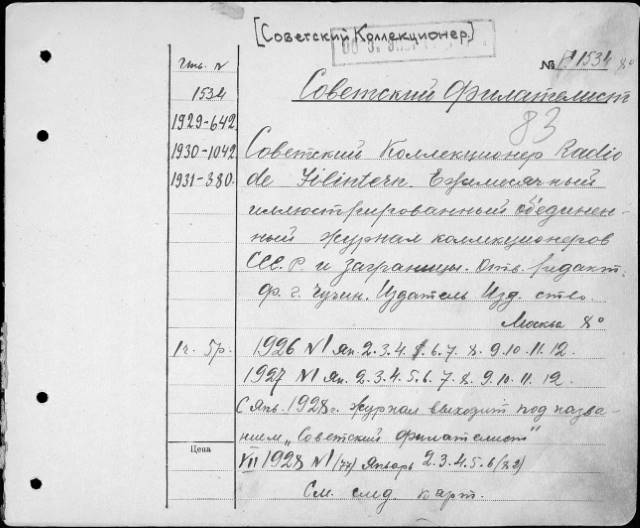 [Советский Коллекционер.]
Инв. N
№ 1534 8°
1534
Советский Филателист
83
1929-642
1930-1042
1931-380.
Советский Коллекционер Radio
de Filintern. Ежемесячный
иллюстрированный объединен-
ный журнал коллекционеров
С.С.С.Р. и заграницы. Отв. редакт.
Ф. Г. Чучин. Издатель Изд. ство.
Москва 8°
1г. 5р.
1926 N 1 Ян. 2. 3. 4. 5. 6. 7. 8. 9. 10. 11. 12.
1927 N 1 Ян. 2. 3. 4. 5. 6. 7. 8. 9. 10. 11. 12.
С Янв. 1928 г. журнал выходит под назва-
нием „Советский филателист"
Цена
VII 1928 N 1 (77) Январь 2. 3. 4. 5. 6 (82)
См. след. карт.